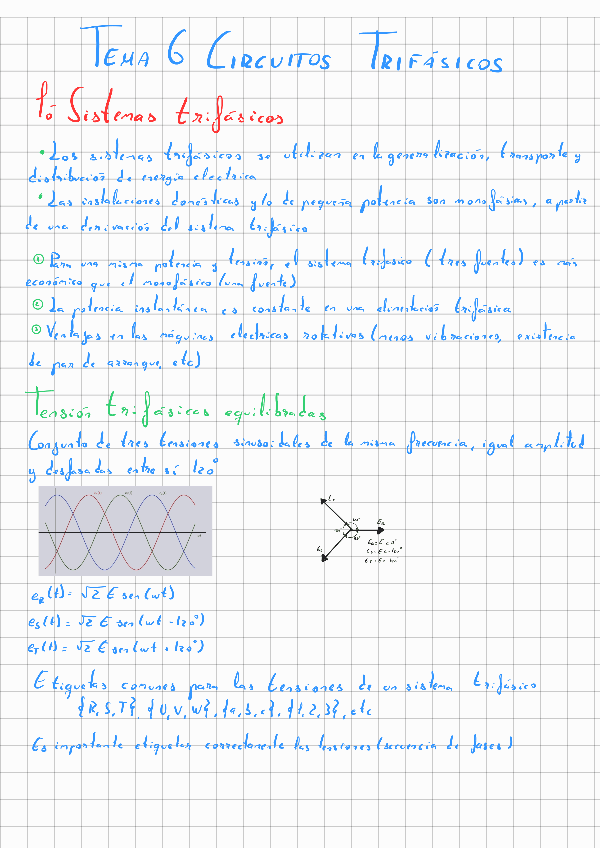 TEMA 6 CIRCUITOS TRIFÁSICOS
Sistemas trifásicos
• Los sistemas trifásicos se utilizan en la generalización, transporte y
distribución de energía electrica
• Las instalaciones domésticas y/o de pequeña potencia son monofásias, a partir
de una derivación del sistema trifásico
① Para una misma potencia y tensión, el sistema trifasico (tres fuentes) es más
económico que el monofásico (una fuente)
② La potencia instantánea es constante en una alimentación trifásica
③ Ventajas en las máquinas electricas rotativas (menos vibraciones, existencia
de par de arranque, etc)
Tensión trifásicas equilibradas
Conjunto de tres tensiones sinusoidales de la misma frecuencia, igual amplitud
y desfasadas entre sí 120°
e_R(t) = √2 E sen(wt)
e_S(t) = √2 E sen(wt - 120°)
e_T(t) = √2 E sen(wt + 120°)
Etiquetas comunes para las tensiones de un sistema trifásico
{R, S, T}, {U, V, W}, {a, b, c}, {1, 2, 3}, etc
Es importante etiquetar correctamente las tensiones (secuencia de fases)